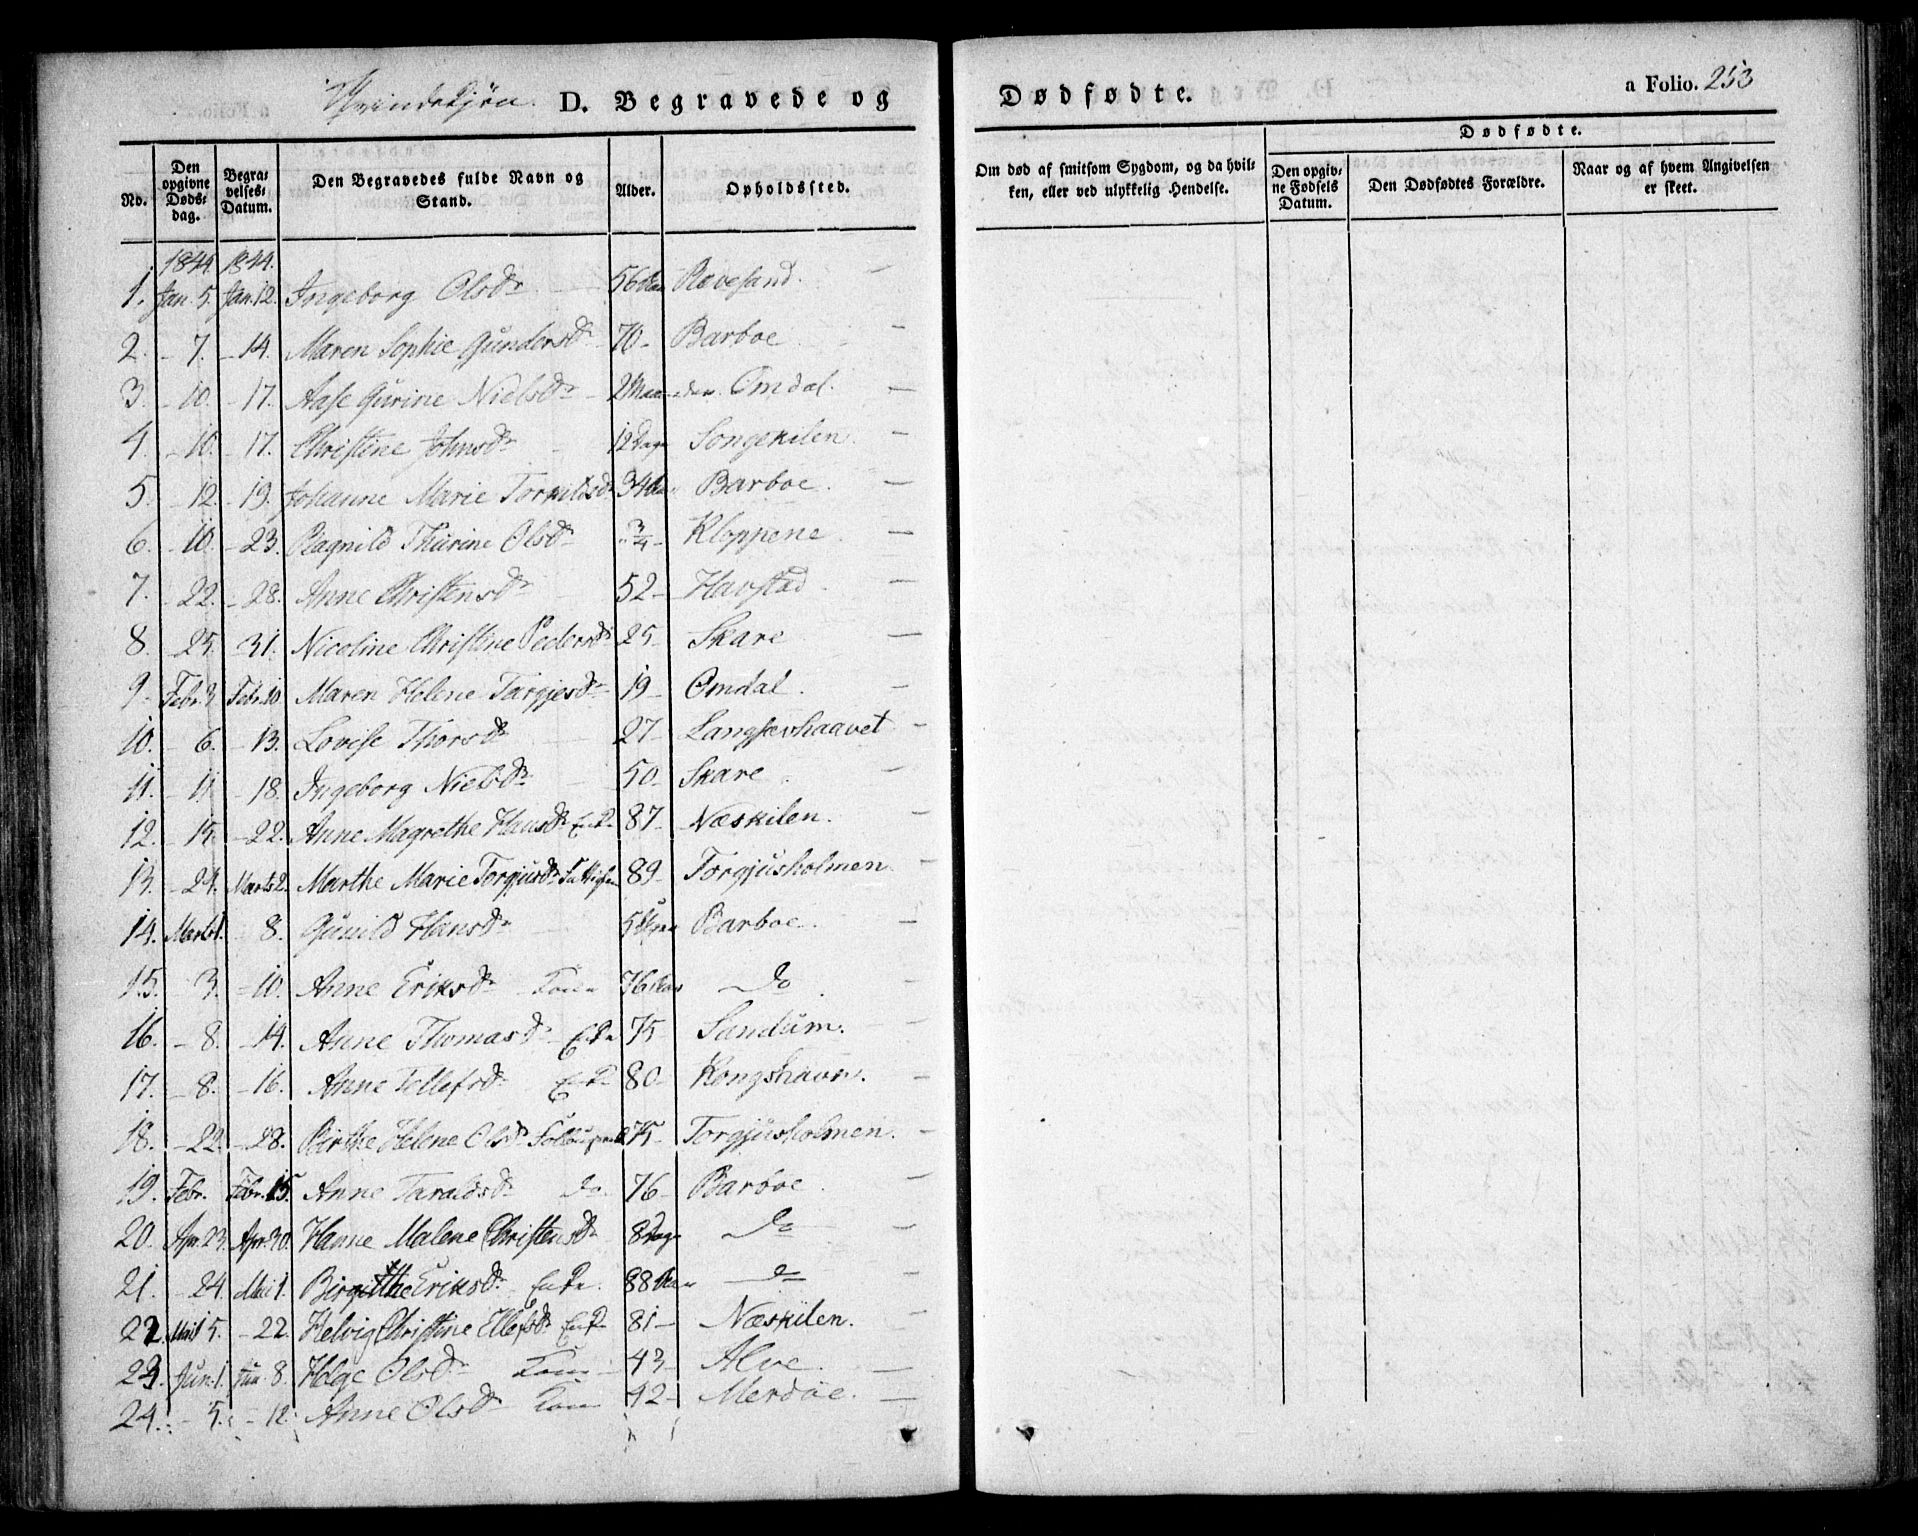 Qvindekjøn. D. Begravede og Dødfødte. a Folio. 253
No. Den opgivne Dødsdag. Begravelses-Datum. Den Begravedes fulde Navn og Stand. Alder. Opholdssted. Om død af smitsom Sygdom, og da hvilken, eller ved ulykkelig Hendelse. Dødfødte. Den opgivne Fødsels Datum. Den Dødfødtes Forældre. Naar og af hvem Angivelsen er skeet.
1844. 1844.
1. Jan. 5. Jan. 12. Ingeborg Olsdr 56 Revesand. —
2. – 7. – 14. Maren Sophie Gundersdr 70 – Barboe —
3. – 10. – 17. Aase Gurine Nielsdr – 2 Maaneder. Omdal. —
4. – 10. – 17. Christine Johnsdr 12 Dage Songekilen. —
5. – 12. – 19. Johanne Marie Torkildsdr 34 Barboe. —
6. – 10. – 23. Ragnild Thurine Olsdr 3/4 – Kloppene. —
7. – 22. – 28. Anne Christensdr 52 – Havstad. —
8. – 25. – 31. Nicoline Christine Pedersdr 25 – Skare —
9. Febr. 3 Febr. 10 Maren Helene Targjesdr 19 – Omdal. —
10. – 6. – 13. Lovise Thorsdr 27 – Langsævhaavet —
11. – 11. – 18. Ingeborg Nielsdr 50 – Skare. —
12. – 15. – 22. Anne Magrethe Hansdr Enke 87 – Næskilen. —
13. – 24. Marts 2. Marthe Marie Torgjusdr 89 – Torgjusholmen. —
14. Marts 1. – 8. Gunild Hansdr 5 Barboe. —
15. – 3. – 10. Anne Eriksdr Kone 76 do. —
16. – 8. – 14. Anne Thomasdr Enke 75 – Sandum. —
17. – 8. – 16. Anne Tellefsdr Enke 80 – Kongshavn. —
18. – 22. – 28. Birthe Helene Olsdr 75 – Torgjusholmen. —
19. Febr. Febr. 15. Anne Taraldsdr do. 76 – Barboe. —
20. Apr. 23. Apr. 30. Hanne Malene Christensdr 8 Dage do —
21. – 24. Mai 1. Birgithe Eriksdr Enke. 88 do —
22. Mai 15. – 22. Helvig Christine Ellefsdr Enke 81 – Næskilen. —
23. Jun. 1. Jun. 8. Helge Olsdr Kone 43 – Alve. —
24. – 5. – 12. Anne Olsdr Kone 42 – Merdøe. —